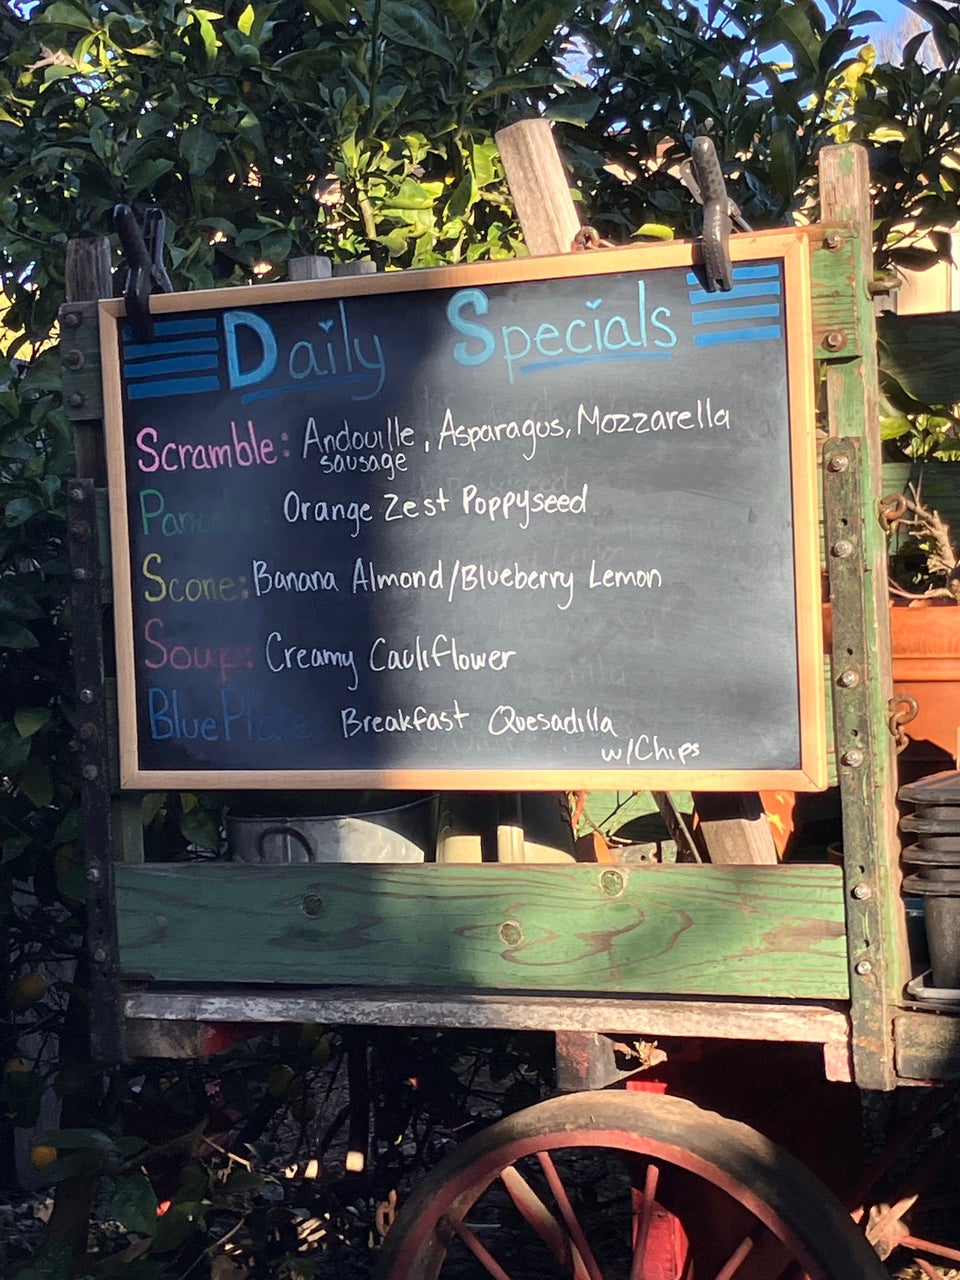 Daily Specials
Scramble: Andouille, Asparagus, Mozzarella
sausage
Orange Zest Poppyseed
Scone: Banana Almond/Blueberry Lemon
Soup: Creamy Cauliflower
Blue Plate: Breakfast Quesadilla
w/Chips